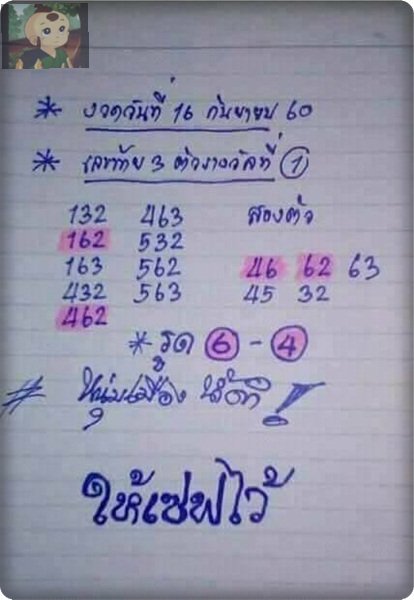 * งวดวันที่ 16 กันยายน 60
* เลขท้าย 3 ตัวรางวัลที่ 1
132 463 สองตัว
162 532
163 562 46 62 63
432 563 45 32
462
* รูด 6 - 4
# หนุ่มเมือง !
ให้เซฟไว้